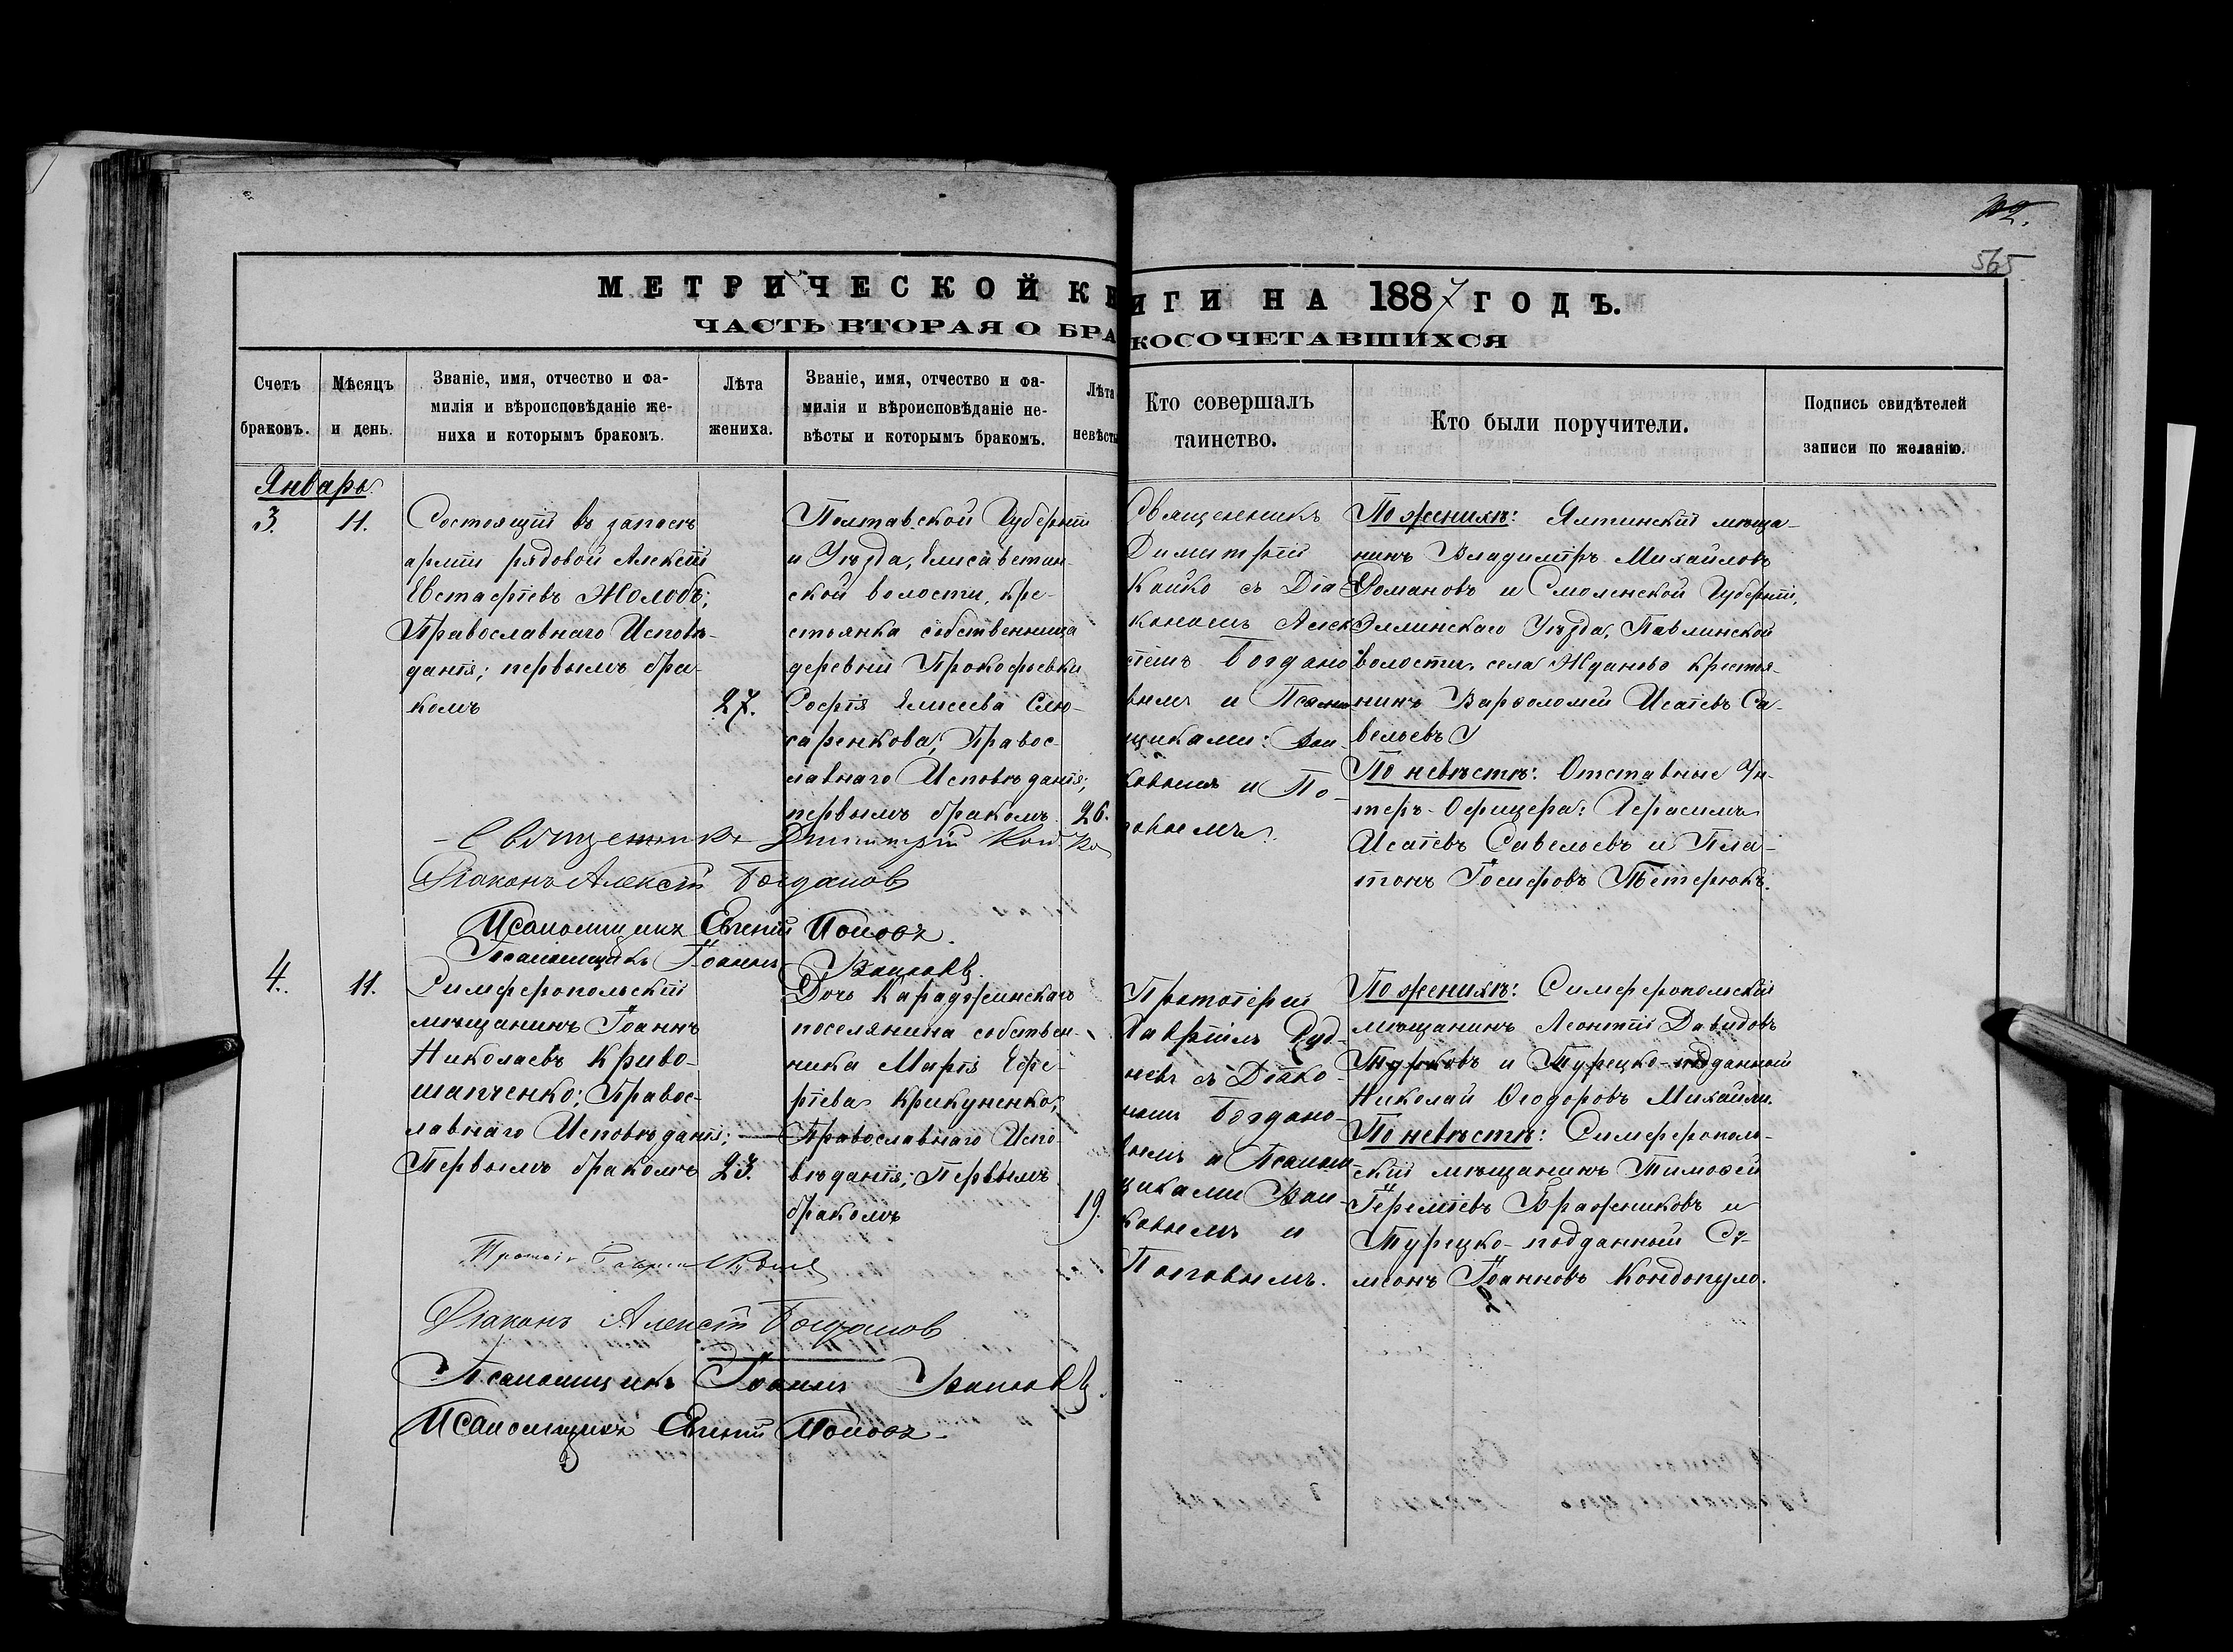 565
МЕТРИЧЕСКОЙ КНИГИ НА 1887 ГОДЪ.
ЧАСТЬ ВТОРАЯ О БРАКОСОЧЕТАВШИХСЯ
Счетъ
браковъ.
Мѣсяцъ
и день.
Званіе, имя, отчество и фа-
милія и вѣроисповѣданіе же-
ниха и которымъ бракомъ.
Лѣта
жениха.
Званіе, имя, отчество и фа-
милія и вѣроисповѣданіе не-
вѣсты и которымъ бракомъ.
Лѣта
невѣсты
Кто совершалъ
таинство.
Кто были поручители.
Подпись свидѣтелей
записи по желанію.
Январь
3.
11.
Состоящій въ запасѣ
арміи рядовой Алексѣй
Евстафіевъ Жолобъ;
Православнаго Исповѣ-
данія; первымъ бра-
комъ
27.
Полтавской Губерніи
и Уѣзда, Елисаветин-
ской волости, кре-
стьянка собственница
деревни Прокофьевки
Софія Елисеева Слю-
саренкова; Правос-
лавнаго Исповѣданія;
первымъ бракомъ.
26.
Священникъ
Димитрій
Койко съ Діа-
кономъ Алек
сіемъ Богдано
вымъ и Псалом
щиками: Вой-
ковымъ и По-
повымъ.
По женихѣ: Ялтинскій мѣща-
нинъ Владиміръ Михайловъ
Романовъ и Смоленской Губерніи,
Эллинскаго Уѣзда, Павлинской
волости, села Жданово крестья-
нинъ Варѳоломей Исаіевъ Са-
вельевъ
По невѣстѣ: Отставные Ун-
теръ-Офицера: Герасимъ
Исаіевъ Савельевъ и Пла-
тонъ Іосифовъ Тетерюкъ.
Священникъ Димитрій Койко
Діаконъ Алексѣй Богдановъ
Псаломщикъ Евгеній Поповъ.
Псаломщикъ Іоаннъ Войковъ.
4.
11.
Симферопольскій
мѣщанинъ Іоаннъ
Николаевъ Криво-
шапченко; Правос-
лавнаго Исповѣданія;
Первымъ бракомъ
23.
Дочь Караджинскаго
поселянина собствен-
ника Марія Ефе-
ріева Крикуненко;
Православнаго Испо-
вѣданія; Первымъ
бракомъ
19.
Протоіерей
Гавріилъ Руд-
невъ съ Діако-
номъ Богдано-
вымъ и Псалом-
щиками Вой-
ковымъ и
Поповымъ.
По женихѣ: Симферопольскій
мѣщанинъ Леонтій Давидовъ
Турковъ и Турецко-подданный
Николай Ѳеодоровъ Михайли.
По невѣстѣ: Симферополь-
скій мѣщанинъ Тимоѳей
Іереміевъ Бражниковъ и
Турецко-подданный Си-
меонъ Іоанновъ Кондопуло.
Діаконъ Алексѣй Богдановъ
Псаломщикъ Іоаннъ Войковъ.
Псаломщикъ Евгеній Поповъ.